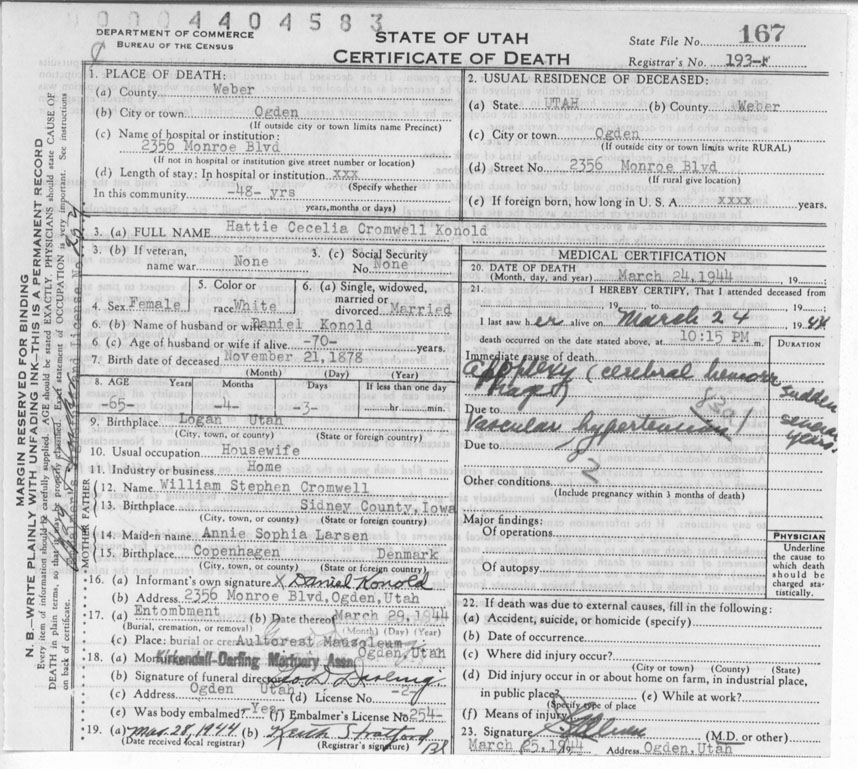 0004404583
DEPARTMENT OF COMMERCE
BUREAU OF THE CENSUS
STATE OF UTAH
CERTIFICATE OF DEATH
State File No. 167
Registrar's No. 193-
MARGIN RESERVED FOR BINDING
N. B.—WRITE PLAINLY WITH UNFADING INK—THIS IS A PERMANENT RECORD
Every item of information should be carefully supplied. AGE should be stated EXACTLY. PHYSICIANS should state CAUSE OF
DEATH in plain terms, so that it may be properly classified. Exact statement of OCCUPATION is very important. See instructions
on back of certificate.
1. PLACE OF DEATH:
(a) County Weber
(b) City or town Ogden
(If outside city or town limits name Precinct)
(c) Name of hospital or institution:
2356 Monroe Blvd
(If not in hospital or institution give street number or location)
(d) Length of stay: In hospital or institution xxx
(Specify whether
In this community -48- yrs
years, months or days)
2. USUAL RESIDENCE OF DECEASED:
(a) State UTAH (b) County Weber
(c) City or town Ogden
(If outside city or town limits write RURAL)
(d) Street No. 2356 Monroe Blvd
(If rural give location)
(e) If foreign born, how long in U. S. A. xxxx years.
3. (a) FULL NAME Hattie Cecelia Cromwell Konold
3. (b) If veteran, name war None
3. (c) Social Security No. None
4. Sex Female
5. Color or race White
6. (a) Single, widowed, married or divorced Married
6. (b) Name of husband or wife Daniel Konold
6. (c) Age of husband or wife if alive -70- years.
7. Birth date of deceased November 21, 1878
(Month) (Day) (Year)
8. AGE Years Months Days If less than one day
-65- -4- -3- hr. min.
9. Birthplace Logan Utah
(City, town, or county) (State or foreign country)
10. Usual occupation Housewife
11. Industry or business Home
FATHER
12. Name William Stephen Cromwell
13. Birthplace Sidney County, Iowa
(City, town, or county) (State or foreign country)
MOTHER
14. Maiden name Annie Sophia Larsen
15. Birthplace Copenhagen Denmark
(City, town, or county) (State or foreign country)
16. (a) Informant's own signature X Daniel Konold
(b) Address 2356 Monroe Blvd, Ogden, Utah
17. (a) Entombment (b) Date thereof March 29, 1944
(Burial, cremation, or removal) (Month) (Day) (Year)
(c) Place: burial or cremation Aultorest Mausoleum
Ogden, Utah
18. (a) Mortuary Kirkendall-Darling Mortuary Assn
(b) Signature of funeral director
(c) Address Ogden Utah (d) License No. -2-
(e) Was body embalmed? Yes (f) Embalmer's License No 254-
19. (a) Mar. 28, 1944 (b) Keith Stratford
(Date received local registrar) (Registrar's signature)
MEDICAL CERTIFICATION
20. DATE OF DEATH
(Month, day, and year) March 24, 1944 19
21. I HEREBY CERTIFY, That I attended deceased from
19 to 19
I last saw her alive on March 24 1944
death occurred on the date stated above, at 10:15 PM m.
DURATION
Immediate cause of death
Appoplexy (cerebral hemorr
hage) sudden
83a1
Due to
Vascular hypertension several years
Due to
2
Other conditions
(Include pregnancy within 3 months of death)
Major findings:
Of operations
Of autopsy
PHYSICIAN
Underline
the cause to
which death
should be
charged sta-
tistically.
22. If death was due to external causes, fill in the following:
(a) Accident, suicide, or homicide (specify)
(b) Date of occurrence
(c) Where did injury occur?
(City or town) (County) (State)
(d) Did injury occur in or about home on farm, in industrial place,
in public place? (e) While at work?
(Specify type of place
(f) Means of injury
23. Signature (M.D. or other)
March 25, 1944 19 Address Ogden, Utah